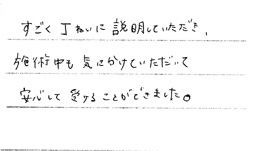 すごく丁ねいに説明していただき、
施術中も気にかけていただいて
安心して受けることができました。